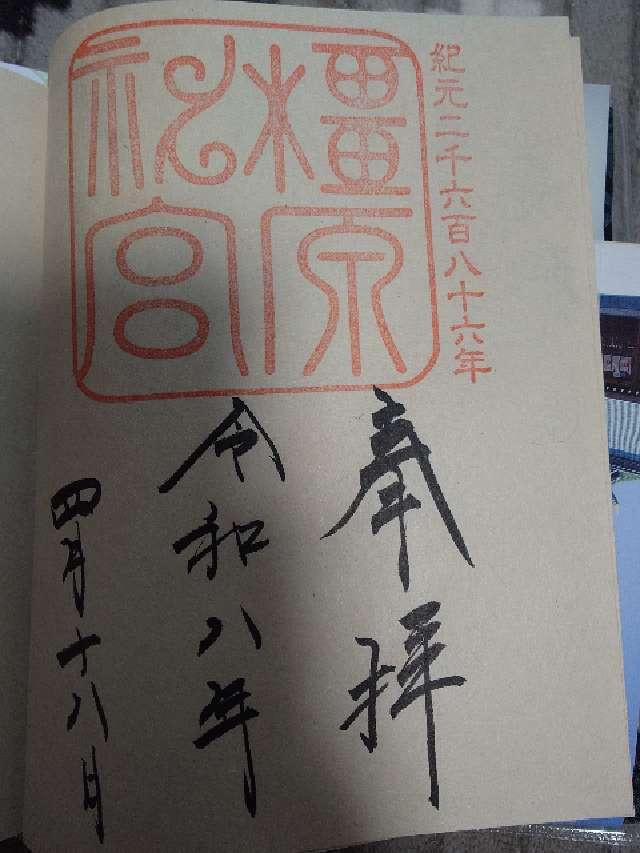 紀元二千六百八十六年
橿原
神宮
奉拝
令和八年
四月十八日